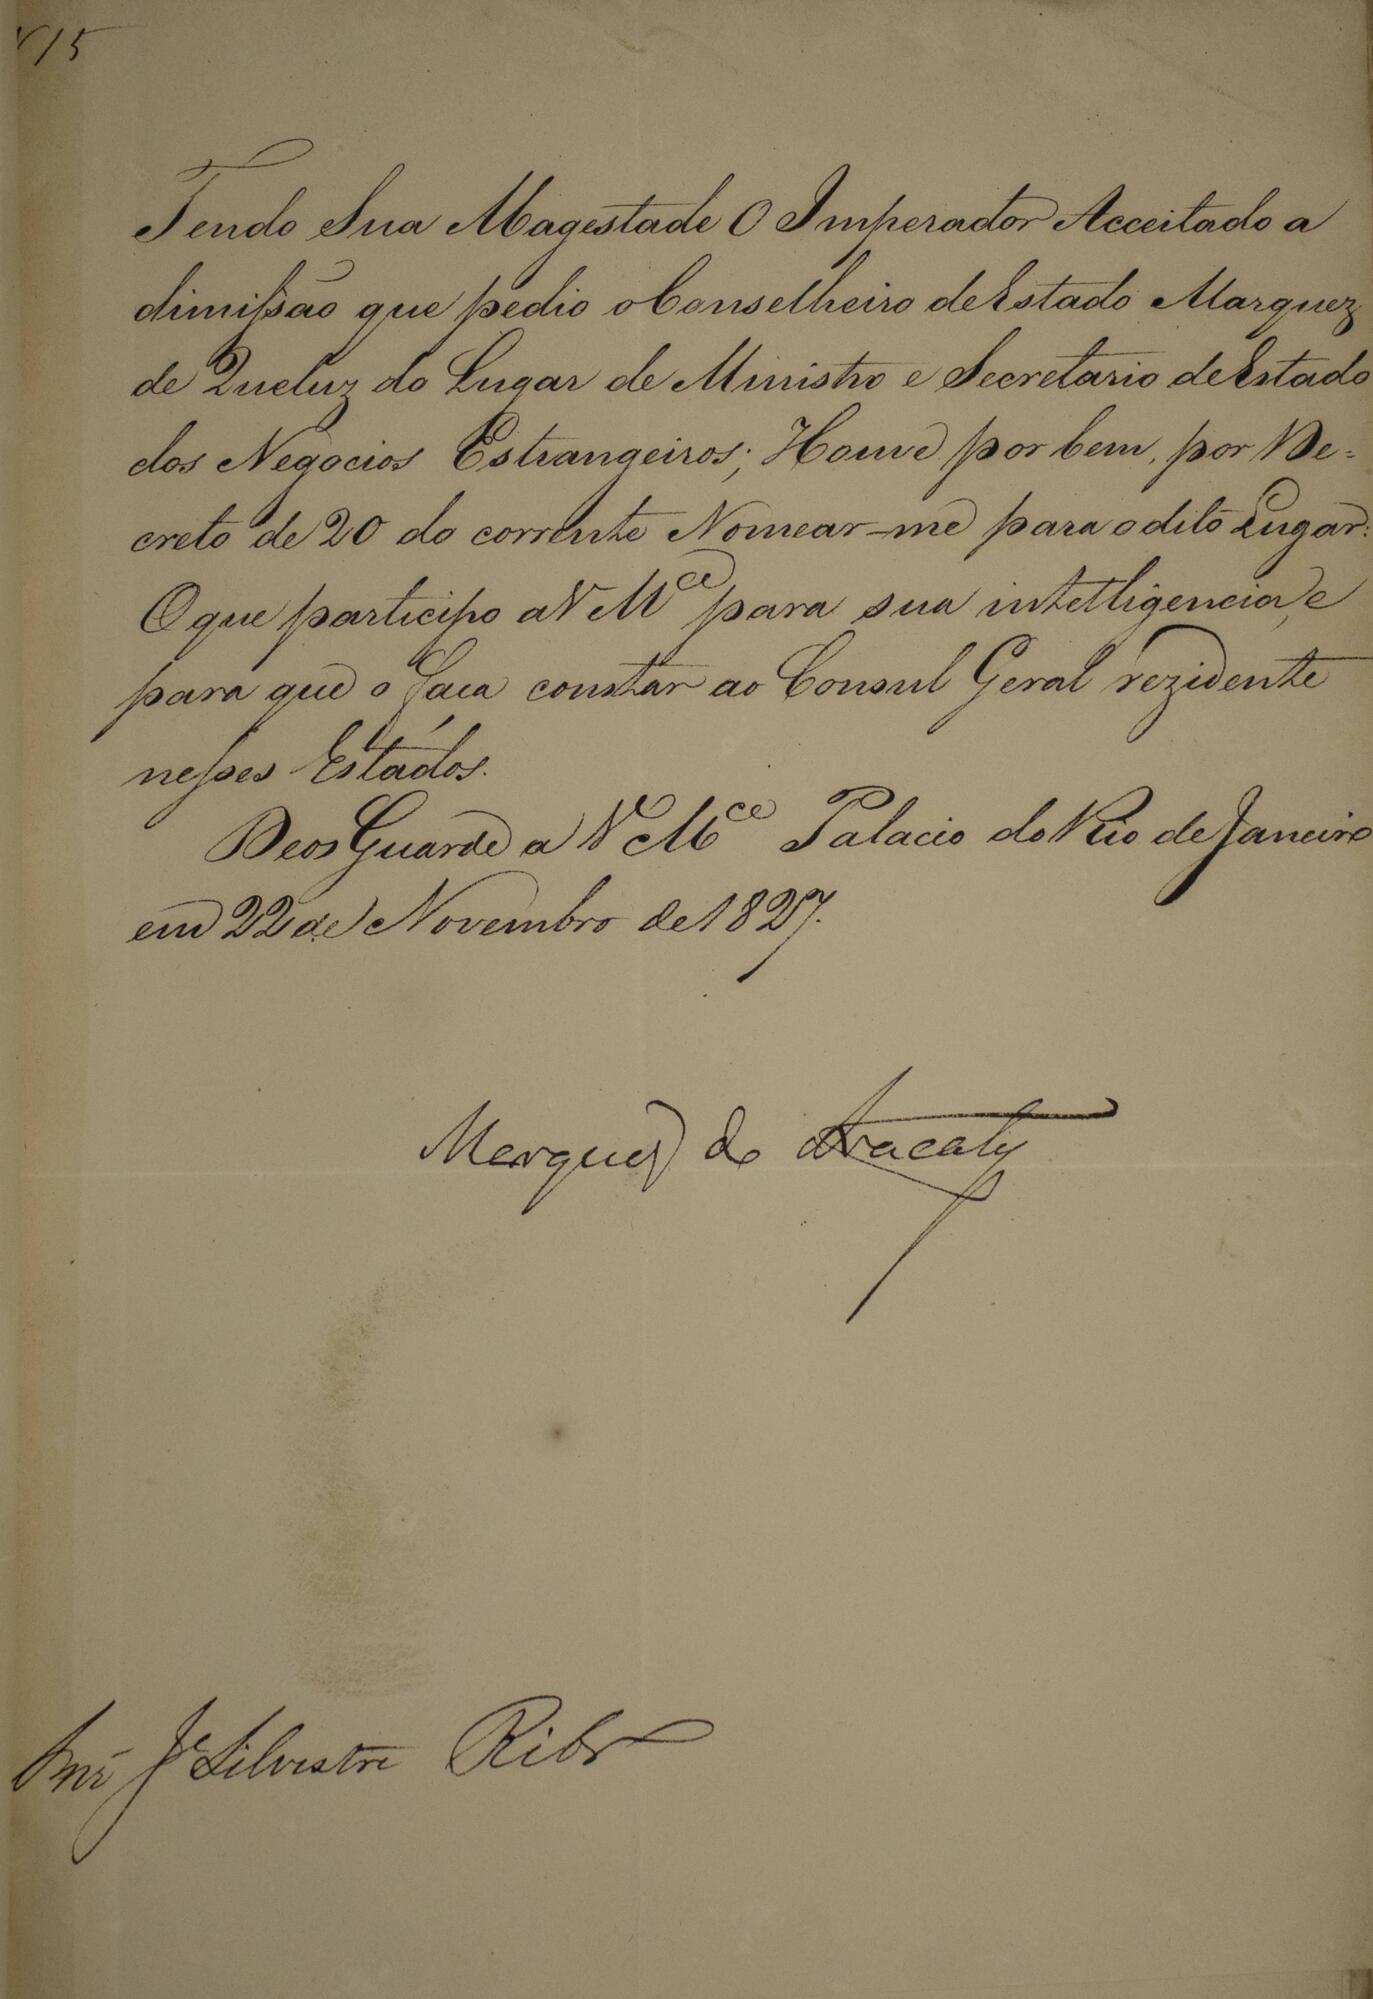 N 15
Tendo Sua Magestade O Imperador Acceitado a
dimissão que pedio o Conselheiro de Estado Marquez
de Queluz do Lugar de Ministro e Secretario de Estado
dos Negocios Estrangeiros; Houve por bem, por De=
creto de 20 do corrente Nomear-me para o dito Lugar:
O que participo a V Mce para sua intelligencia, e
para que o faça constar ao Consul Geral rezidente
nesses Estados.
Deos Guarde a V Mce Palacio do Rio de Janeiro
em 22 de Novembro de 1827.
Marquez de Aracaty
Snr Je Silvestre Ribo